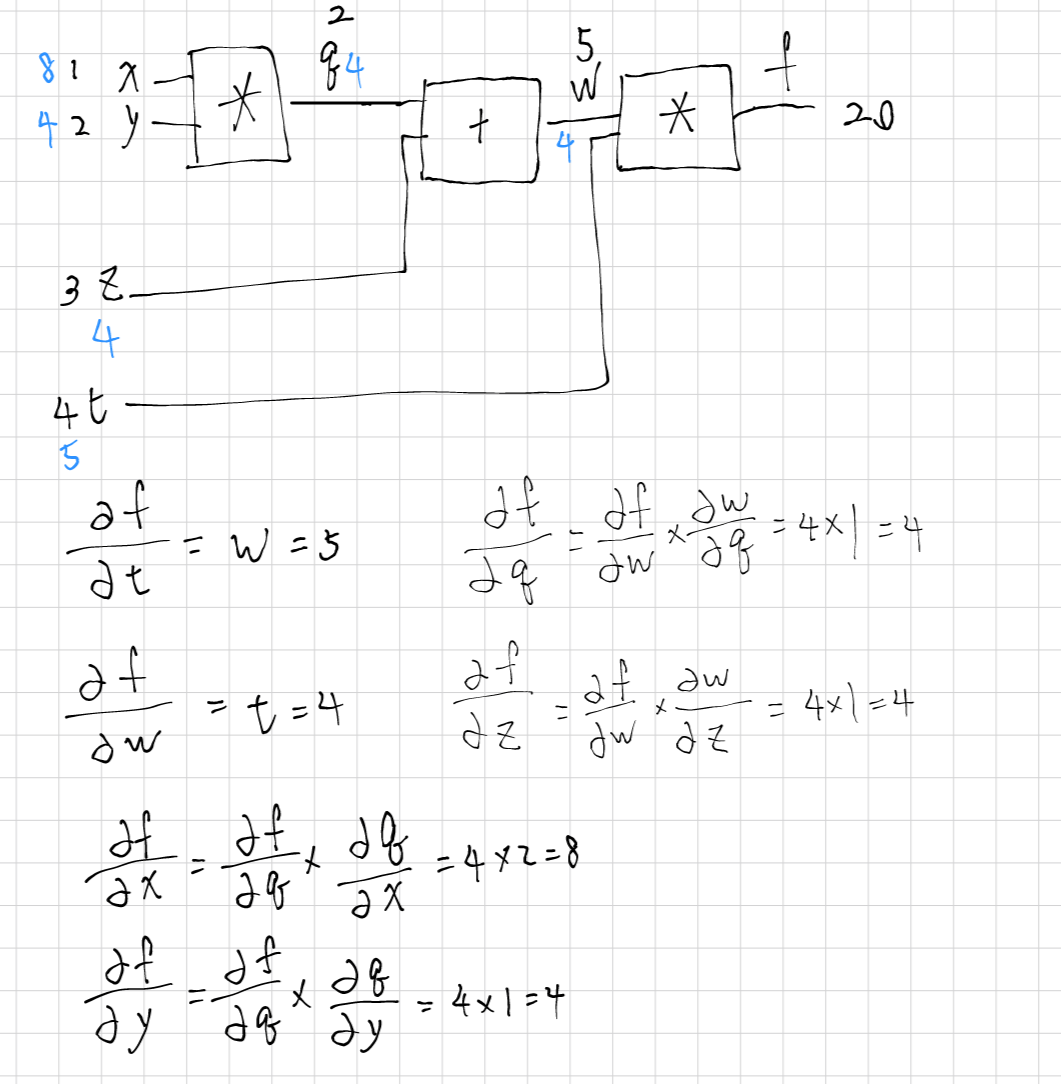 2
8 1 x * q 4 5 f
4 2 y + w * 20
4
3 z
4
4 t
5
∂f/∂t = w = 5 ∂f/∂q = ∂f/∂w × ∂w/∂q = 4×1 = 4
∂f/∂w = t = 4 ∂f/∂z = ∂f/∂w × ∂w/∂z = 4×1 = 4
∂f/∂x = ∂f/∂q × ∂q/∂x = 4×2 = 8
∂f/∂y = ∂f/∂q × ∂q/∂y = 4×1 = 4